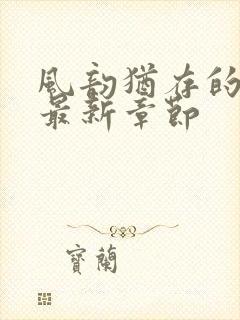 風韵猶存的
最新章節
寶蘭